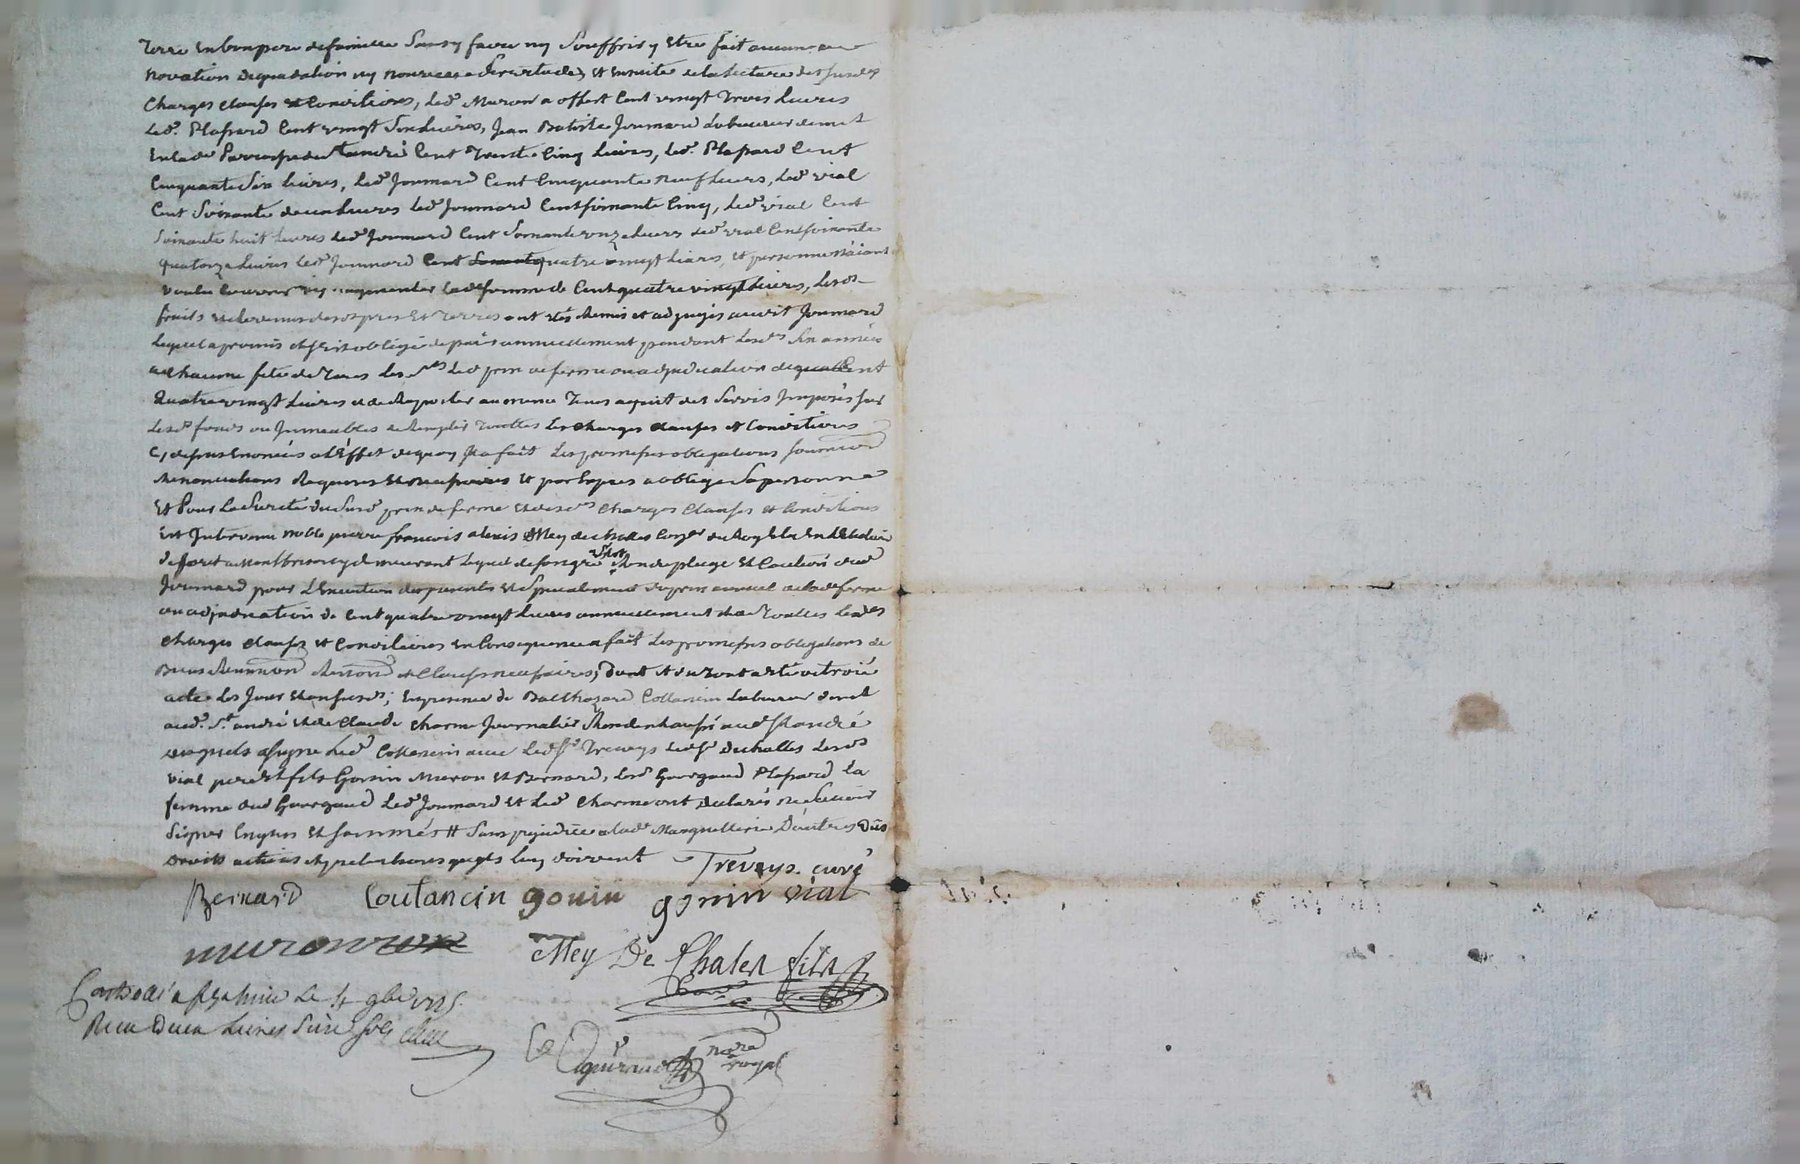 terre en bon pere de famille sans y faire ny souffrir y etre fait aucune
novation degradation ny nouvelle servitudes, et ensuite de la lecture des susd.es
charges clauses et conditions, led. Muron a offert cent vingt trois livres
led. Plasard cent vingt six livres, Jean Batiste Joumard laboureur demt
en lad. parroisse de St andré cent trente cinq livres, led. Plasard cent
cinquante six livres, led. Joumard cent cinquante neuf livres, led. vial
cent soixante deux livres led. Joumard cent soixante cinq, led. vial cent
soixante huit livres led. Joumard cent soixante onze livres led. vial cent soixante
quatorze livres led. Joumard cent quatre vingt livres, et personne n'aiant
voulu couvrir ny augmenter lad. somme de cent quatre vingt livres, lesd.
fruits et revenus desd. pres et terres ont été remis et adjugés aud. Joumard
lequel a promis et s'est obligé de paier annuellement pendant lesd. six années
a chacune fete de led. prix de ferme ou adjudication de cent
quatre vingt livres et de raporter au meme tems aquit des servis imposés sur
lesd. fonds ou immeubles et remplir touttes les charges clauses et conditions
cy dessus enoncées a l'effet de quoy il a fait les promesses obligations soumissions
renonciations requises et necessaires et par exprès a obligé sa personne
et pour la sureté du susd. prix de ferme et desd. charges clauses et conditions
est intervenu noble pierre francois alexis Mey de chales Coner du Roy en l'Election
de forest a Montbrison y demeurant lequel de son gré s'est rendu plege et caution dud.
Joumard pour l'execution des presentes et specialement du prix annuel de lad. ferme
ou adjudication de cent quatre vingt livres annuellement et de touttes lesd.
charges clauses et conditions en consequence a fait les promesses obligations de
biens et clauses necessaires, dont et du tout a été octroié
acte les jour et an susd.; en presence de Balthazard Coltancin laboureur demt
aud. St andré et de Claude charme Journalier aud. St andré
lesquels a signé led. Coltancin avec led. Sr Treveys led. Sr Dechalles lesd.
vial pere et fils Gonin Muron et Bernard, lesd. Gourgaud Plasard la
femme dud. Gourgaud led. Joumard et led. Charme ont declarés ne scavoir
signer enquis et sommés # sans prejudice a lad. Marguillerie d'autres dûs
droits actions et pretentions qu'ils luy doivent Treveys. curé
Bernard Coutancin gonin gonin vial
muron
Mey De Chales fils
Controllé a le 4 9bre
Reçu deux livres
nore royal